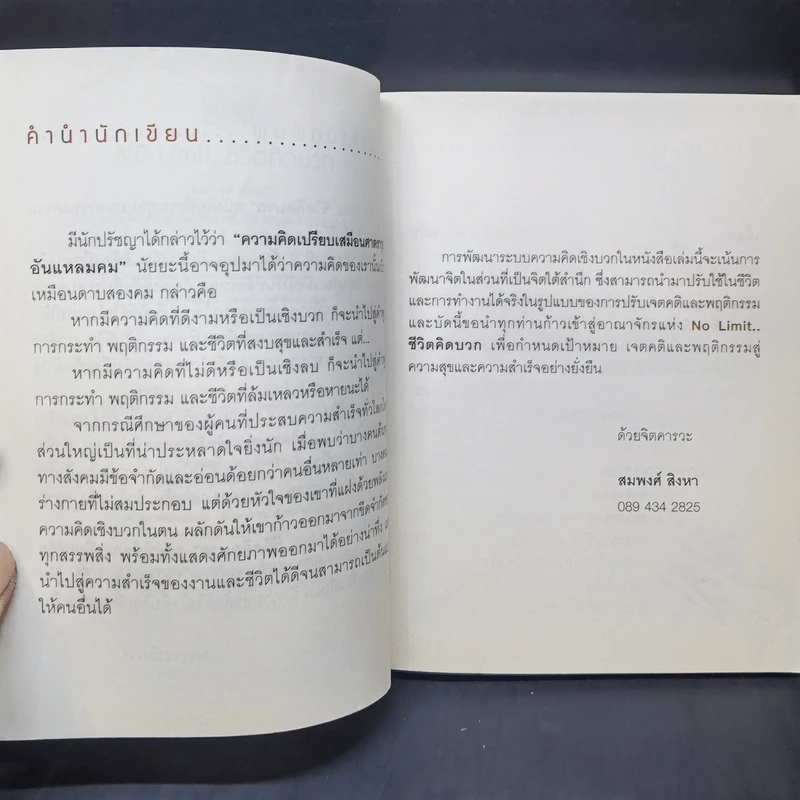 คำนำนักเขียน....................
มีนักปรัชญาได้กล่าวไว้ว่า “ความคิดเปรียบเสมือนศาสตรา
อันแหลมคม” นัยยะนี้อาจอุปมาได้ว่าความคิดของเรานั้น
เหมือนดาบสองคม กล่าวคือ
หากมีความคิดที่ดีงามหรือเป็นเชิงบวก ก็จะนำไปสู่
การกระทำ พฤติกรรม และชีวิตที่สงบสุขและสำเร็จ แต่...
หากมีความคิดที่ไม่ดีหรือเป็นเชิงลบ ก็จะนำไปสู่
การกระทำ พฤติกรรม และชีวิตที่ล้มเหลวหรือหายนะได้
จากกรณีศึกษาของผู้คนที่ประสบความสำเร็จทั่วโลก
ส่วนใหญ่เป็นที่น่าประหลาดใจยิ่งนัก เมื่อพบว่าบางคน
ทางสังคมมีข้อจำกัดและอ่อนด้อยกว่าคนอื่นหลายเท่า
ร่างกายที่ไม่สมประกอบ แต่ด้วยหัวใจของเขาที่แฝงด้วย
ความคิดเชิงบวกในตน ผลักดันให้เขาก้าวออกมาจาก
ทุกสรรพสิ่ง พร้อมทั้งแสดงศักยภาพออกมาได้อย่างน่าทึ่ง
นำไปสู่ความสำเร็จของงานและชีวิตได้ดีจนสามารถเป็น
ให้คนอื่นได้
การพัฒนาระบบความคิดเชิงบวกในหนังสือเล่มนี้จะเน้นการ
พัฒนาจิตในส่วนที่เป็นจิตใต้สำนึก ซึ่งสามารถนำมาปรับใช้ในชีวิต
และการทำงานได้จริงในรูปแบบของการปรับเจตคติและพฤติกรรม
และบัดนี้ขอนำทุกท่านก้าวเข้าสู่อาณาจักรแห่ง No Limit..
ชีวิตคิดบวก เพื่อกำหนดเป้าหมาย เจตคติและพฤติกรรมสู่
ความสุขและความสำเร็จอย่างยั่งยืน
ด้วยจิตคารวะ
สมพงศ์ สิงหา
089 434 2825